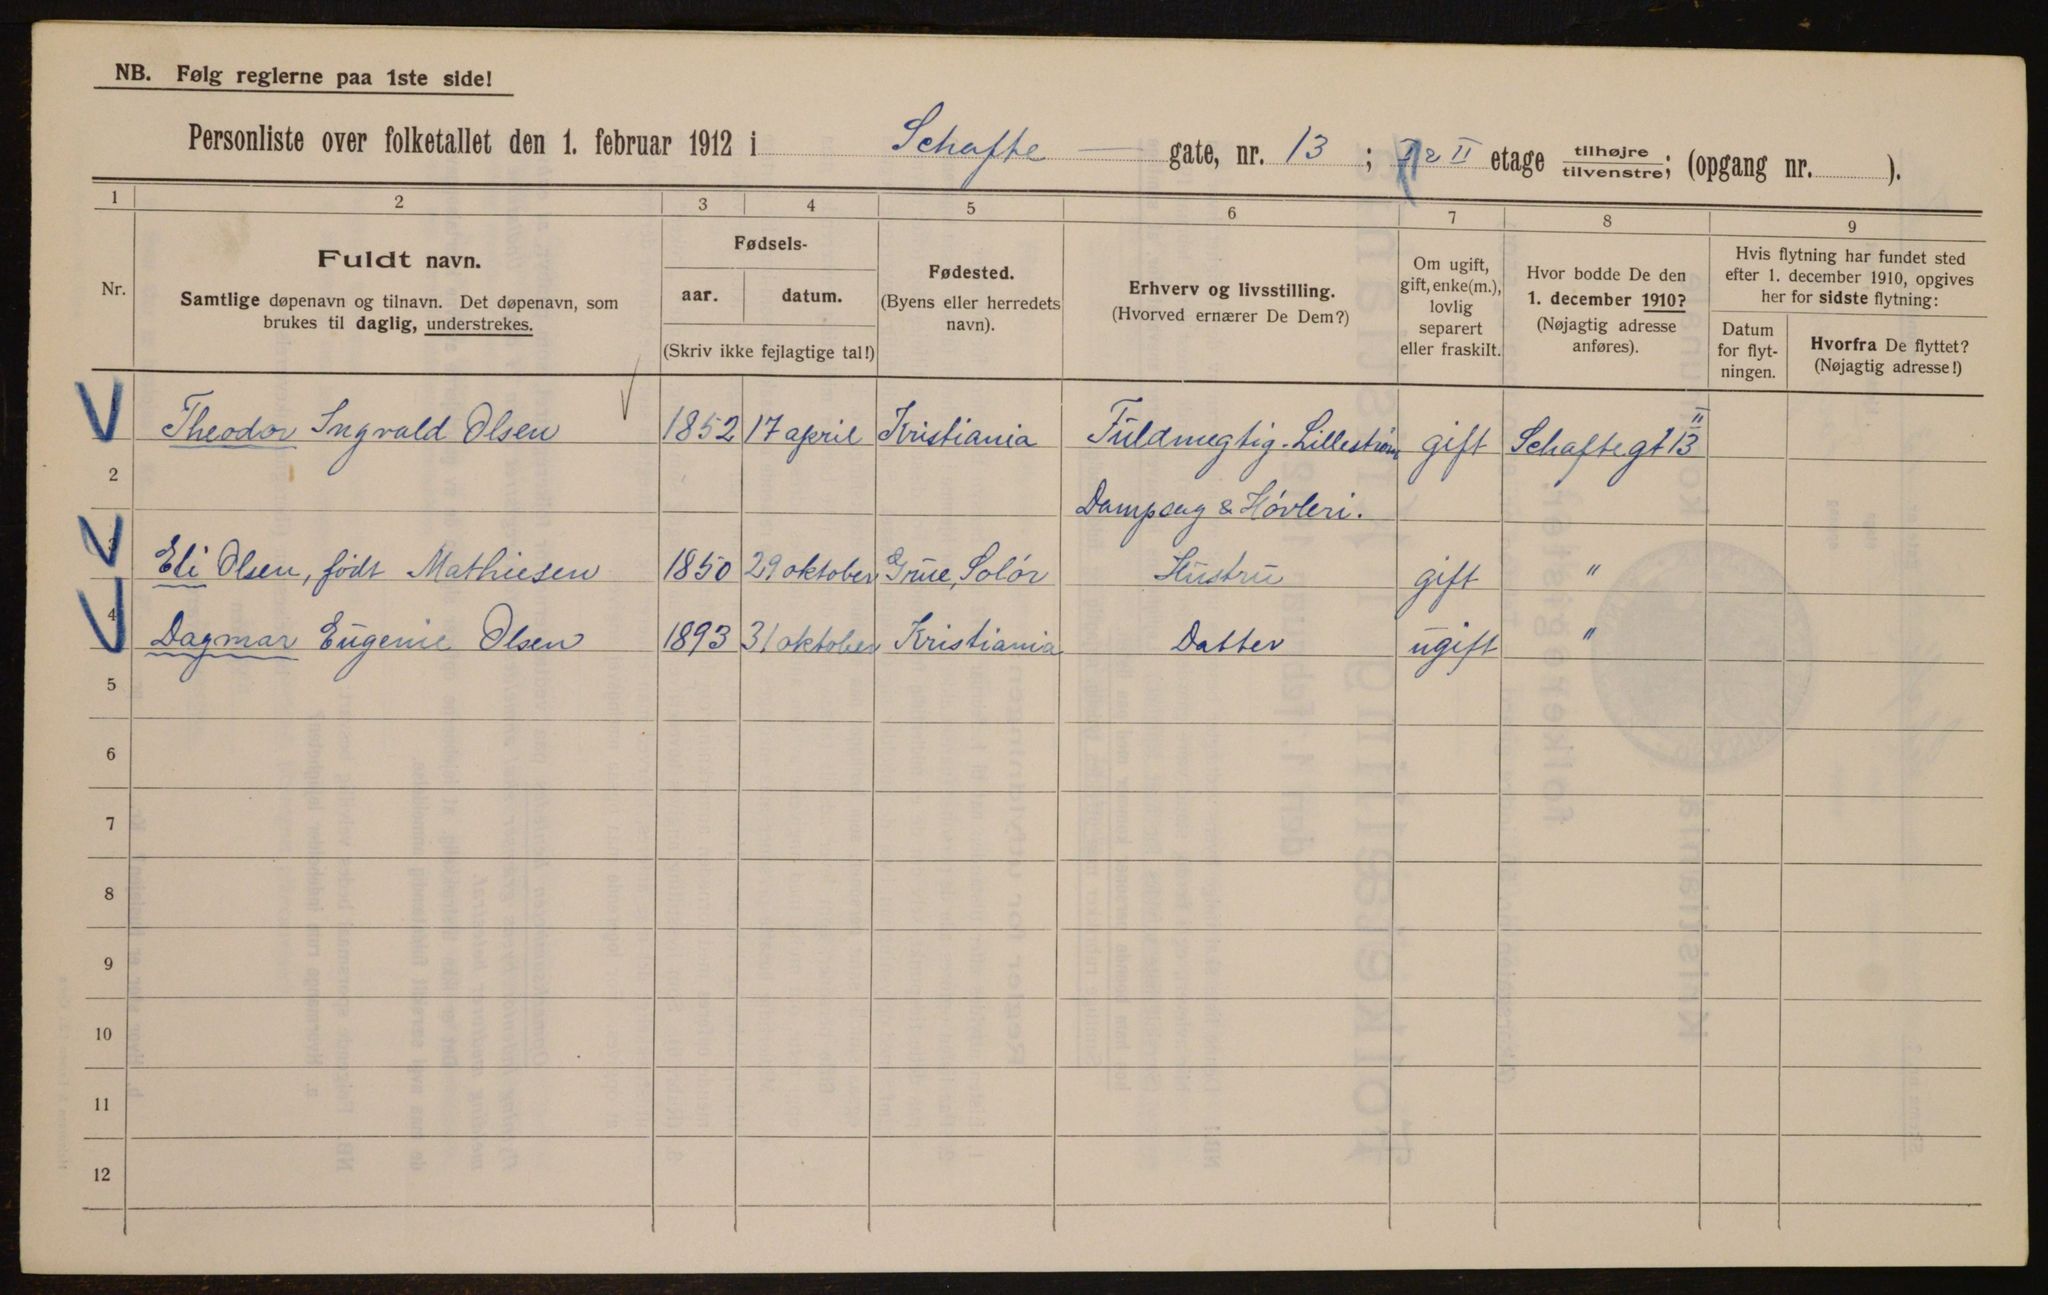 NB. Følg reglerne paa 1ste side!
Personliste over folketallet den 1. februar 1912 i Schafte gate, nr. 13; II etage tilhøjre/tilvenstre; (opgang nr. ).
1 2 3 4 5 6 7 8 9
Nr.
Fuldt navn.
Samtlige døpenavn og tilnavn. Det døpenavn, som
brukes til daglig, understrekes.
Fødsels-
aar. datum.
(Skriv ikke fejlagtige tal!)
Fødested.
(Byens eller herredets
navn).
Erhverv og livsstilling.
(Hvorved ernærer De Dem?)
Om ugift,
gift, enke(m.),
lovlig
separert
eller fraskilt.
Hvor bodde De den
1. december 1910?
(Nøjagtig adresse
anføres).
Hvis flytning har fundet sted
efter 1. december 1910, opgives
her for sidste flytning:
Datum
for flyt-
ningen.
Hvorfra De flyttet?
(Nøjagtig adresse!)
Theodor Ingvald Olsen 1852 17 april Kristiania Fuldmegtig. Lillestrøm gift Schaftegt 13 II
2 Dampsag & Høvleri.
3 Eli Olsen, født Mathiesen 1850 29 oktober Grue, Solør Hustru gift "
4 Dagmar Eugenie Olsen 1893 31 oktober Kristiania Datter ugift "
5
6
7
8
9
10
11
12